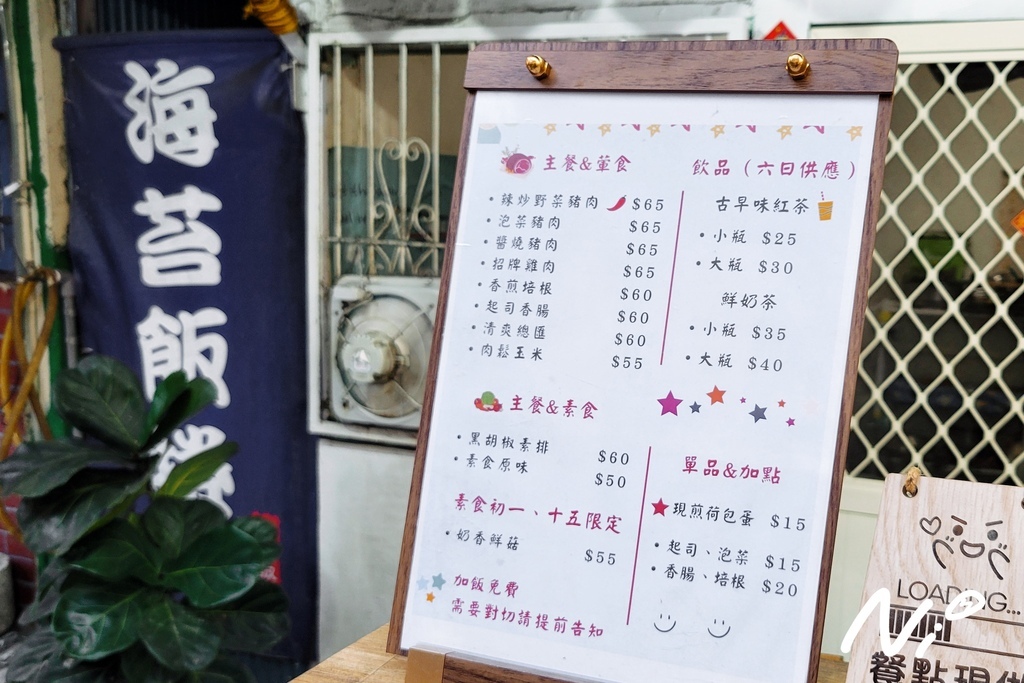 海苔飯糰
主餐&葷食
辣炒野菜豬肉 $65
泡菜豬肉 $65
醬燒豬肉 $65
招牌雞肉 $65
香煎培根 $60
起司香腸 $60
清爽總匯 $60
肉鬆玉米 $55
主餐&素食
黑胡椒素排 $60
素食原味 $50
素食初一、十五限定
奶香鮮菇 $55
加飯免費
需要對切請提前告知
飲品(六日供應)
古早味紅茶
小瓶 $25
大瓶 $30
鮮奶茶
小瓶 $35
大瓶 $40
單品&加點
現煎荷包蛋 $15
起司、泡菜 $15
香腸、培根 $20
LOADING...
餐點現做
Ni